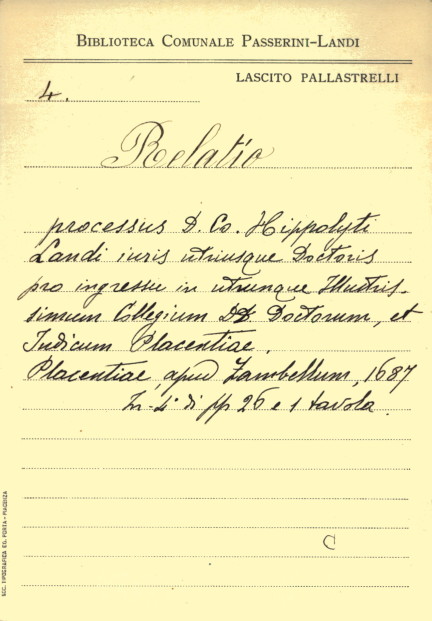 BIBLIOTECA COMUNALE PASSERINI-LANDI
LASCITO PALLASTRELLI
4.
Relatio
processus D. Co. Hippolyti
Landi iuris utriusque Doctoris
pro ingressu in utrunque Illustris-
simum Collegium DD. Doctorum, et
Iudicum Placentiae.
Placentiae, apud Zambellum, 1687
In-4° di pp 26 e 1 tavola.
C
SOC. TIPOGRAFICA ED. PORTA - PIACENZA